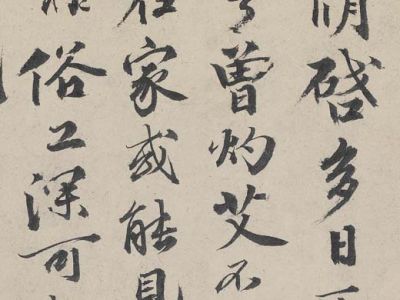 啓多日
曾灼艾不
在家或能見
俗工深可